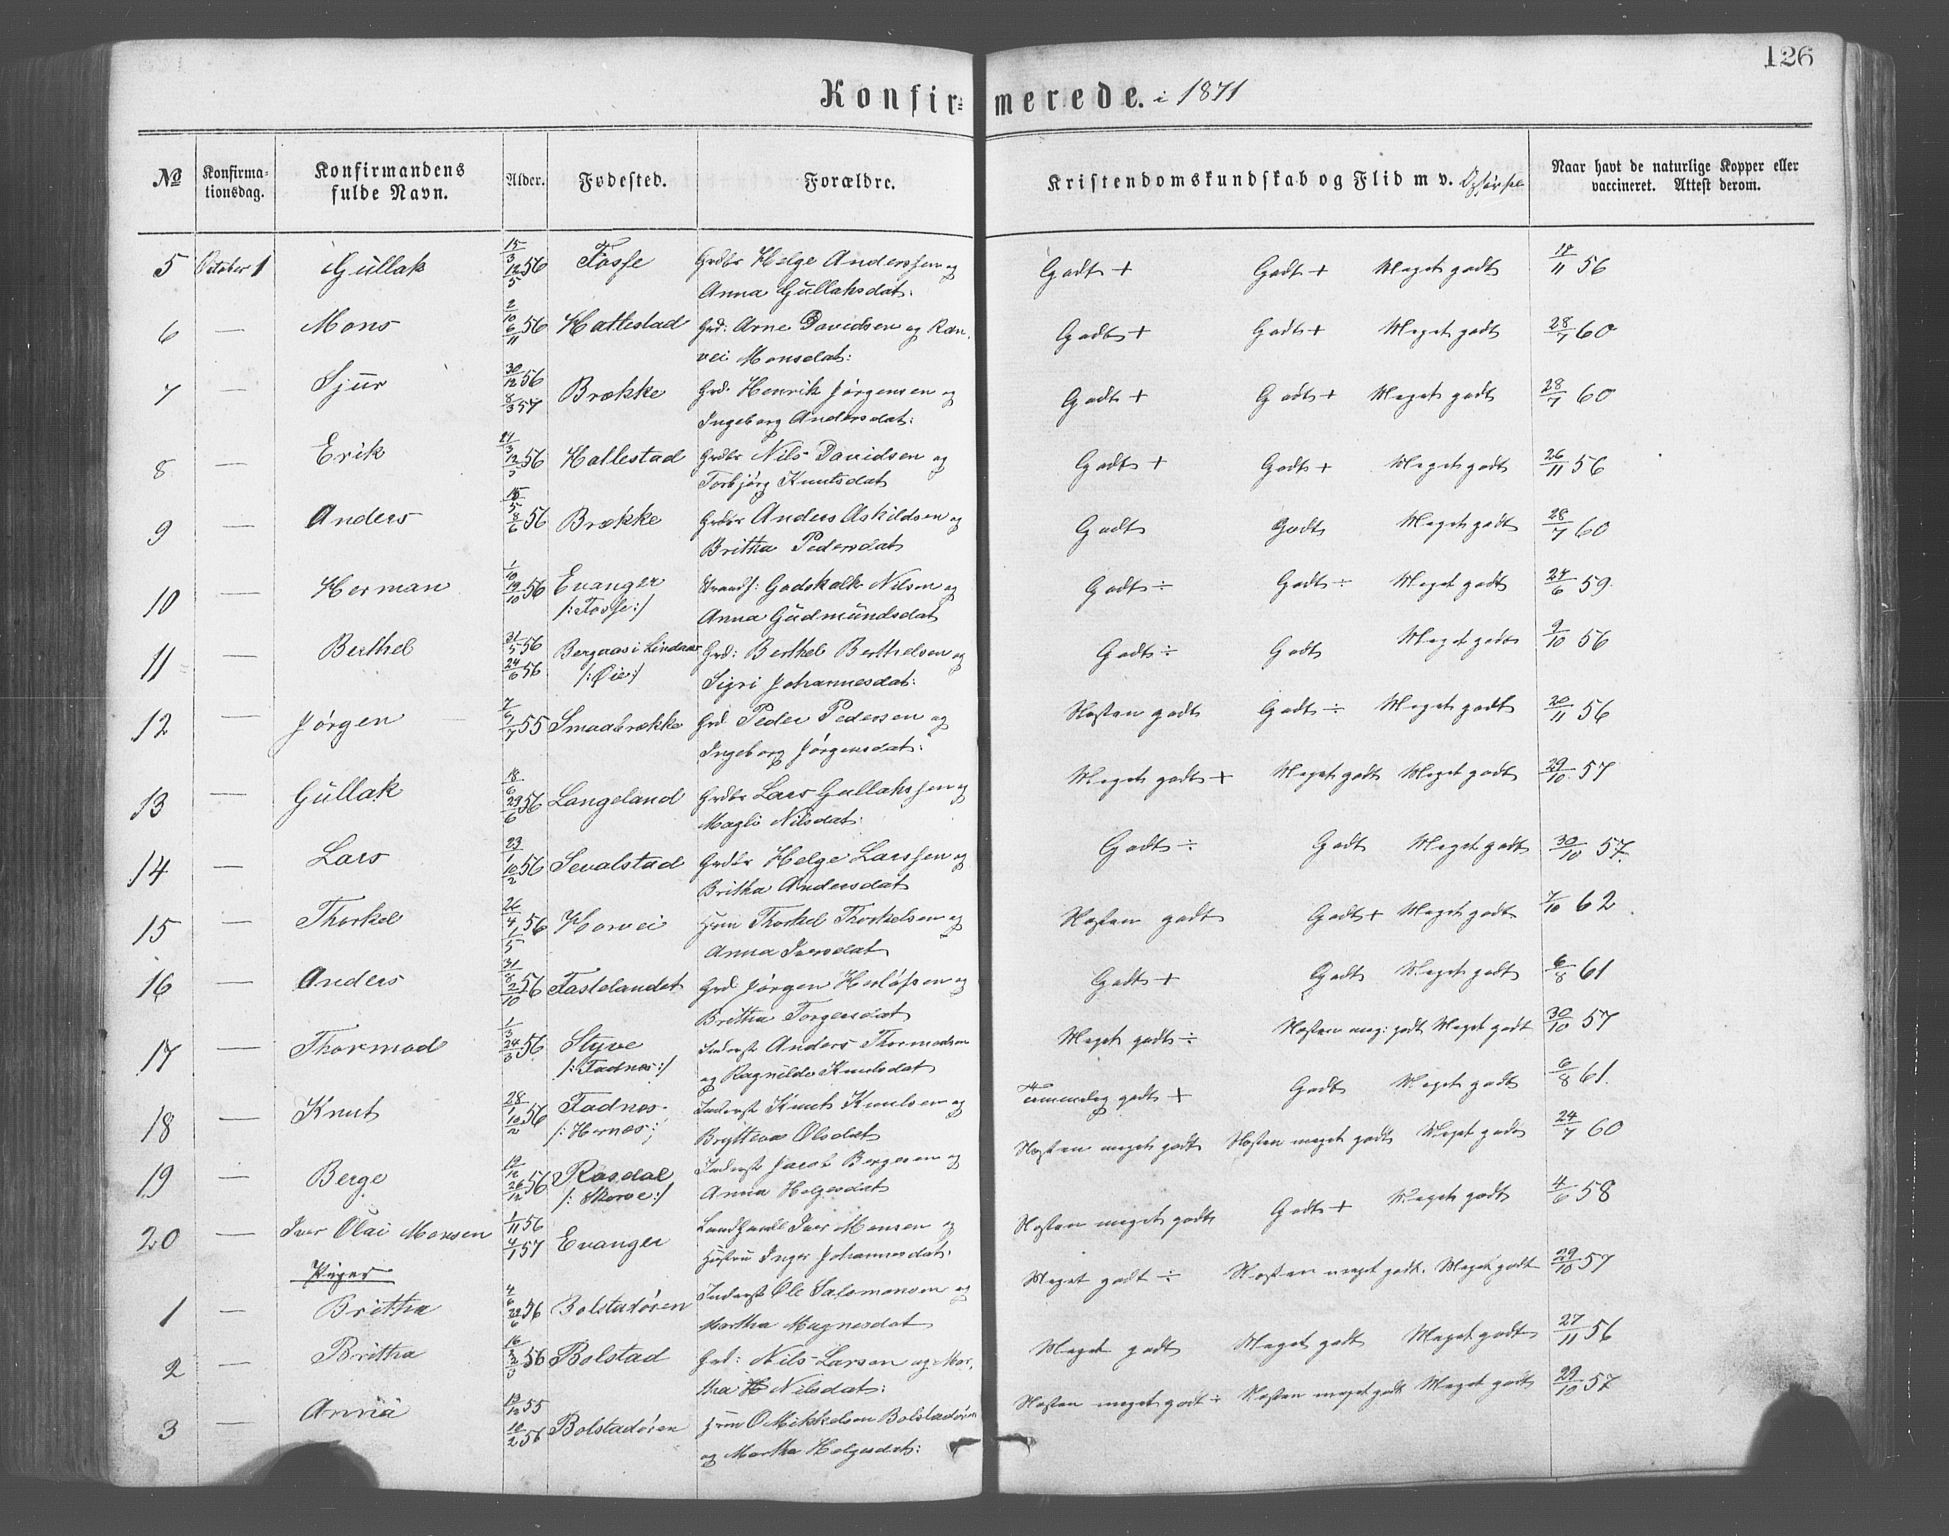 126
Konfirmerede. i 1871
№ Konfirmationsdag. Konfirmandens fulde Navn. Alder. Fødested. Forældre. Kristendomskundskab og Flid m v. Opførsel Naar havt de naturlige Kopper eller vaccineret. Attest derom.
5 October 1 Gullak 15/3 12/5 56 Fosse Grdbr Helge Anderssen og Anna Gullaksdat: Godt + Godt + Meget godt 18/11 56
6 — Mons 2/10 6/11 56 Hallestad Grd: Arne Davidsen og Ranvei Monsdat: Godt + Godt + Meget godt 28/7 60
7 — Sjur 30/12 56 8/3 57 Brække Grd. Henrik Jørgensen og Ingeborg Andersdat: Godt + Godt + Meget godt 28/7 60
8 — Erik 24/3 12/5 56 Hallestad Grdbr Nils Davidsen og Torbjørg Knutsdat Godt + Godt + Meget godt 26/11 56
9 — Anders 15/5 8/6 56 Brække Grdbr Anders Askildsen og Britha Pedersdat Godt Godt Meget godt 28/7 60
10 — Herman 1/10 19/10 56 Evanger /: Fosse :/ Strands: Godskalk Nilsen og Anna Gudmundsdat Godt ÷ Godt ÷ Meget godt 24/6 59.
11 — Berthel 31/5 56 24/6 56 Bergaas i Lindaas /: Øie :/ Grd: Berthel Berthelsen og Sigri Johannesdat: Godt ÷ Godt Meget godt 9/10 56
12 — Jørgen 7/6 9/7 55 Smaabrække Grd Peder Pedersen og Ingeborg Jørgensdat: Næsten godt Godt ÷ Meget godt 20/11 56
13 — Gullak 18/6 29/6 56 Langeland Grdbr Lars Gullakssen og Magli Nilsdat: Meget godt + Meget godt Meget godt 29/10 57
14 — Lars 23/1 10/2 56 Sevalstad Grdbr Helge Larssen og Britha Andersdat Godt ÷ Godt Meget godt 30/10 57.
15 — Thorkel 26/4 1/5 56 Horvei Hmn Thorkel Thorkelsen og Anna Iversdat Næsten godt Godt + Meget godt 7/10 62
16 — Anders 31/8 2/10 56 Fastelandet Grd Jørgen Herløfsen og Britha Torgersdat Godt + Godt Meget godt 6/8 61
17 — Thormod 1/3 24/3 56 Styve /: Fadnes :/ Inderst Anders Thormodsen og Ragnilde Knutsdat Meget godt ÷ Næsten meg: godt Meget godt 30/10 57
18 — Knut 28/1 10/2 56 Fadnes /: Hernes :/ Inderst Knut Knutsen og Brytteva Olsdat Temmelig godt + Godt Meget godt 6/8 61.
19 — Berge 19/12 26/12 56 Rasdal /: Skorve :/ Inderst Jacob Bergesen og Anna Helgesdat Næsten meget godt Næsten meget godt Meget godt 24/7 60
20 — Iver Olai Monsen 1/11 56 4/1 57 Evanger Landhandl Iver Monsen og Hustru Inger Johannesdat. Næsten meget godt Godt + Meget godt 4/6 58
Piger
1 — Britha 4/6 22/6 56 Bolstadøren Inderst Ole Salomonsen og Martha Magnesdat Meget godt ÷ Næsten meget godt. Meget godt 29/10 57
2 — Britha 16/2 2/3 56 Bolstad Grd: Nils Larsen og Martha Nilsdat: Meget godt Meget godt Meget godt 27/11 56
3 — Anna 19/12 55 10/2 56 Bolstadøren Hmn O Mikkelsen Bolstadøren og Martha Helgesdat: Næsten meget godt ÷ Næsten meget godt Meget godt 29/10 57